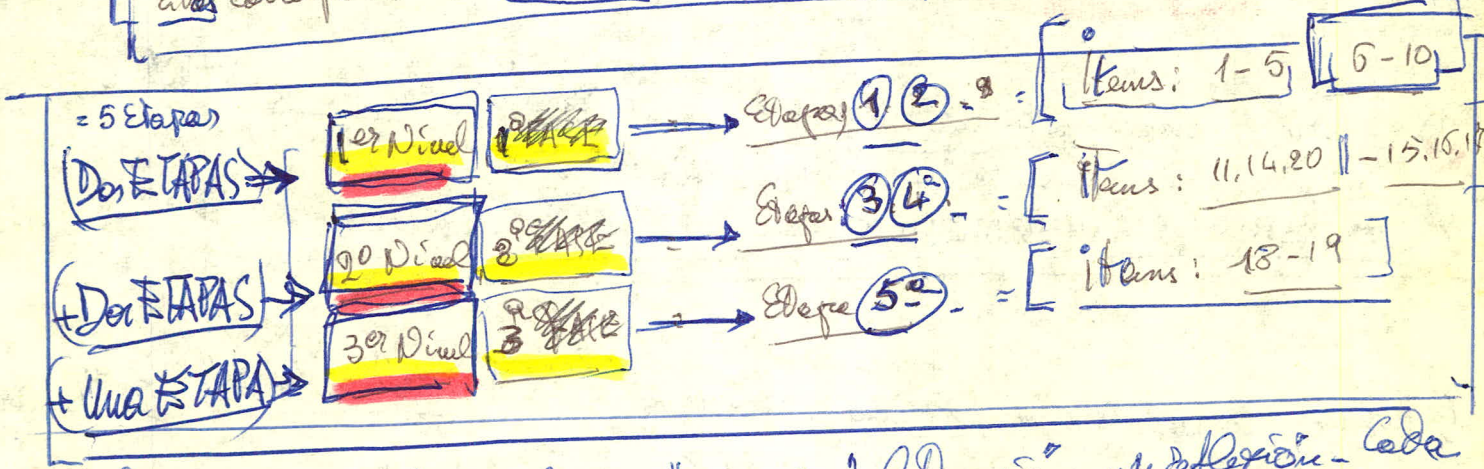 = 5 Etapas
(Dos ETAPAS) 1er Nivel 1ª Etapas 1 2 - = [ Items: 1-5 ] [ 6-10 ]
(+ Dos ETAPAS) 2º Nivel 2ª Etapas 3 4ª - = [ Items: 11,14,20 || - 15,16,
(+ Una ETAPA) 3er Nivel 3ª Etapa 5ª - = [ items: 18-19 ]
reflexión - Cada